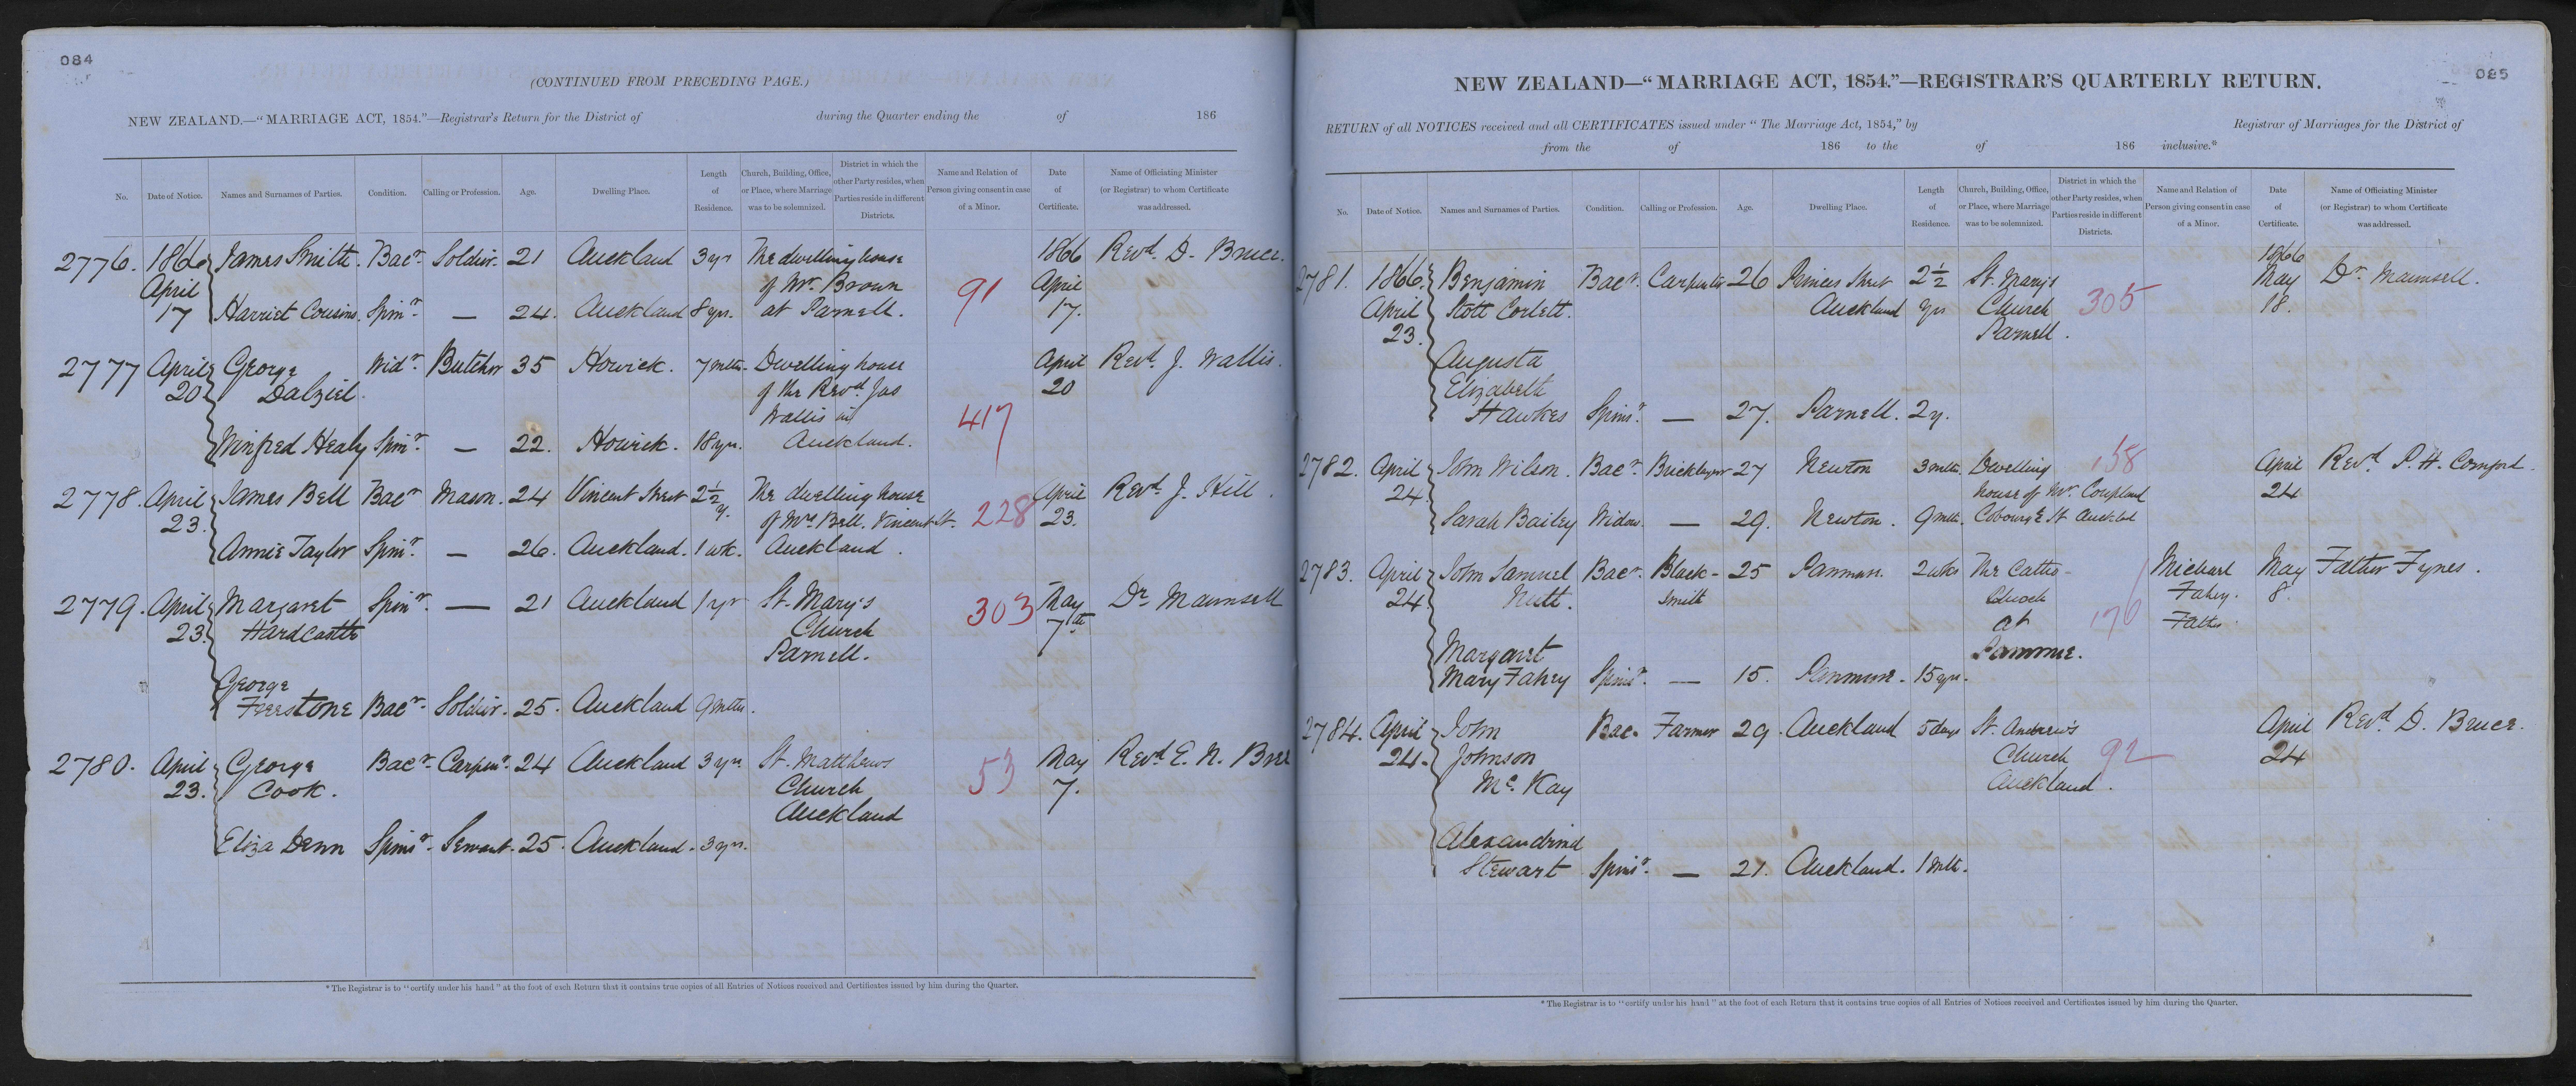 084
(CONTINUED FROM PRECEDING PAGE.)
NEW ZEALAND.—"MARRIAGE ACT, 1854."—Registrar's Return for the District of during the Quarter ending the of 186
No. Date of Notice. Names and Surnames of Parties. Condition. Calling or Profession. Age. Dwelling Place. Length of Residence. Church, Building, Office, or Place, where Marriage was to be solemnized. District in which the other Party resides, when Parties reside in different Districts. Name and Relation of Person giving consent in case of a Minor. Date of Certificate. Name of Officiating Minister (or Registrar) to whom Certificate was addressed.
2776. 1866 James Smith. Bacr. Soldier. 21 Auckland 3 yrs The dwelling house 1866 Revd. D. Bruce.
April of Mr. Brown 91 April
17 Harriet Cousins. Spinr. — 24. Auckland 8 yrs. at Parnell. 17.
2777 April George Widr. Butcher 35 Howick. 7 mths. Dwelling house April Revd. J. Wallis.
20 Dalziel. of the Revd. Jas 20
Wallis in 417
Winfred Healy Spinr. — 22. Howick. 18 yrs. Auckland.
2778. April James Bell Bacr Mason. 24 Vincent Street 2½ y. The dwelling house April Revd. J. Hill.
23. of Mrs Bell. Vincent St. 228 23.
Annie Taylor Spinr. — 26. Auckland. 1 wk. Auckland.
2779. April Margaret Spinr. — 21 Auckland 1 yr St. Mary's 303 May Dr. Maunsell
23. Hardcastle Church 7th
Parnell.
George
Feerstone Bacr. Soldier. 25. Auckland 9 mths.
2780. April George Bacr. Carpenr. 24 Auckland 3 yrs. St. Matthews 53 May Revd E. N. Bree
23. Cook. Church 7.
Auckland
Eliza Denn Spinsr. Servant. 25. Auckland. 3 yrs.
*The Registrar is to "certify under his hand" at the foot of each Return that it contains true copies of all Entries of Notices received and Certificates issued by him during the Quarter.
085
NEW ZEALAND—"MARRIAGE ACT, 1854."—REGISTRAR'S QUARTERLY RETURN.
RETURN of all NOTICES received and all CERTIFICATES issued under "The Marriage Act, 1854," by Registrar of Marriages for the District of
from the of 186 to the of 186 inclusive.*
No. Date of Notice. Names and Surnames of Parties. Condition. Calling or Profession. Age. Dwelling Place. Length of Residence. Church, Building, Office, or Place, where Marriage was to be solemnized. District in which the other Party resides, when Parties reside in different Districts. Name and Relation of Person giving consent in case of a Minor. Date of Certificate. Name of Officiating Minister (or Registrar) to whom Certificate was addressed.
2781. 1866. Benjamin Bacr. Carpenter 26 Princes Street 2½ St. Mary's 1866 May Dr. Maunsell.
April Stott Corlett. Auckland yrs Church 305 18.
23. Parnell.
Augusta
Elizabeth
Hawkes Spinsr. — 27. Parnell. 2 y.
2782. April John Wilson. Bacr. Bricklayer 27 Newton 3 mths. Dwelling 158 April Revd. P. H. Cornford.
24. house of Mr. Coupland 24
Sarah Bailey Widow. — 29. Newton. 9 mths. Cobourg St Auckld
2783. April John Samuel Bacr. Black- 25 Panmure. 2 wks The Catho- Michael May Father Fynes.
24. Nutt. smith Church Fahey. 8.
at 170 Father
Margaret Panmure.
Mary Fahey Spinsr. — 15. Panmure. 15 yrs.
2784. April John Bac. Farmer 29. Auckland 5 days St. Andrew's April Revd D. Bruce.
24. Johnson Church 92 24
Mc. Kay Auckland.
Alexandrina
Stewart Spinsr. — 21. Auckland. 1 mth.
*The Registrar is to "certify under his hand" at the foot of each Return that it contains true copies of all Entries of Notices received and Certificates issued by him during the Quarter.